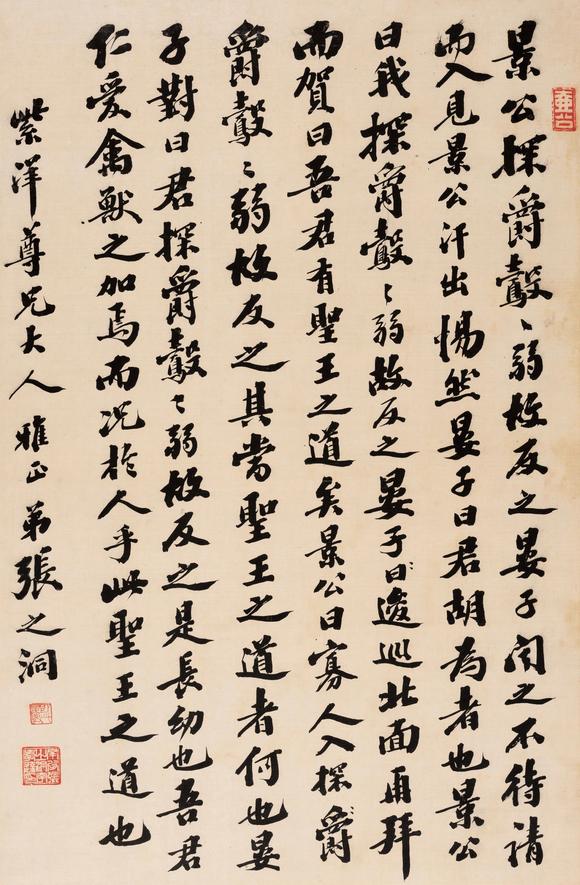 景公探爵鷇〻弱故反之晏子聞之不待請
而入見景公汗出惕然晏子曰君胡為者也景公
曰我探爵鷇〻弱故反之晏子曰逡巡北面再拜
而賀曰吾君有聖王之道矣景公曰寡人入探爵
爵鷇〻弱故反之其當聖王之道者何也晏
子對曰君探爵鷇〻弱故反之是長幼也吾君
仁愛禽獸之加焉而況於人乎此聖王之道也
紫洋尊兄大人 雅正 弟張之洞
壺公